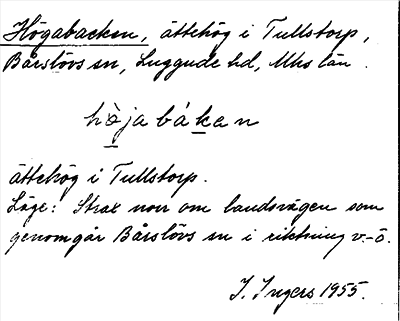 Högabacken, ättehög i Tullstorp,
Bårslövs sn, Luggude hd, Mhs län.
hò̱jabáḵan
ättehög i Tullstorp.
Läge: Strax norr om landsvägen som
genomgår Bårslövs sn i riktning v.-ö.
I. Ingers 1955.